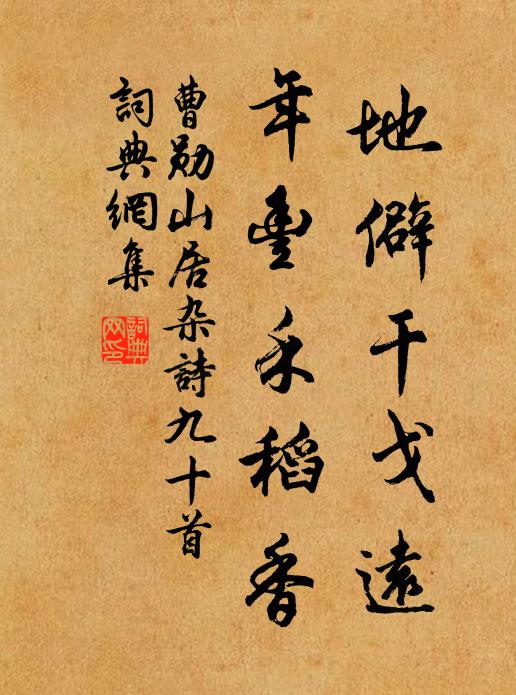 地僻干戈遠
年豐禾稻香
曹勛山居杂詩九十首
詞典網集
詞典网印